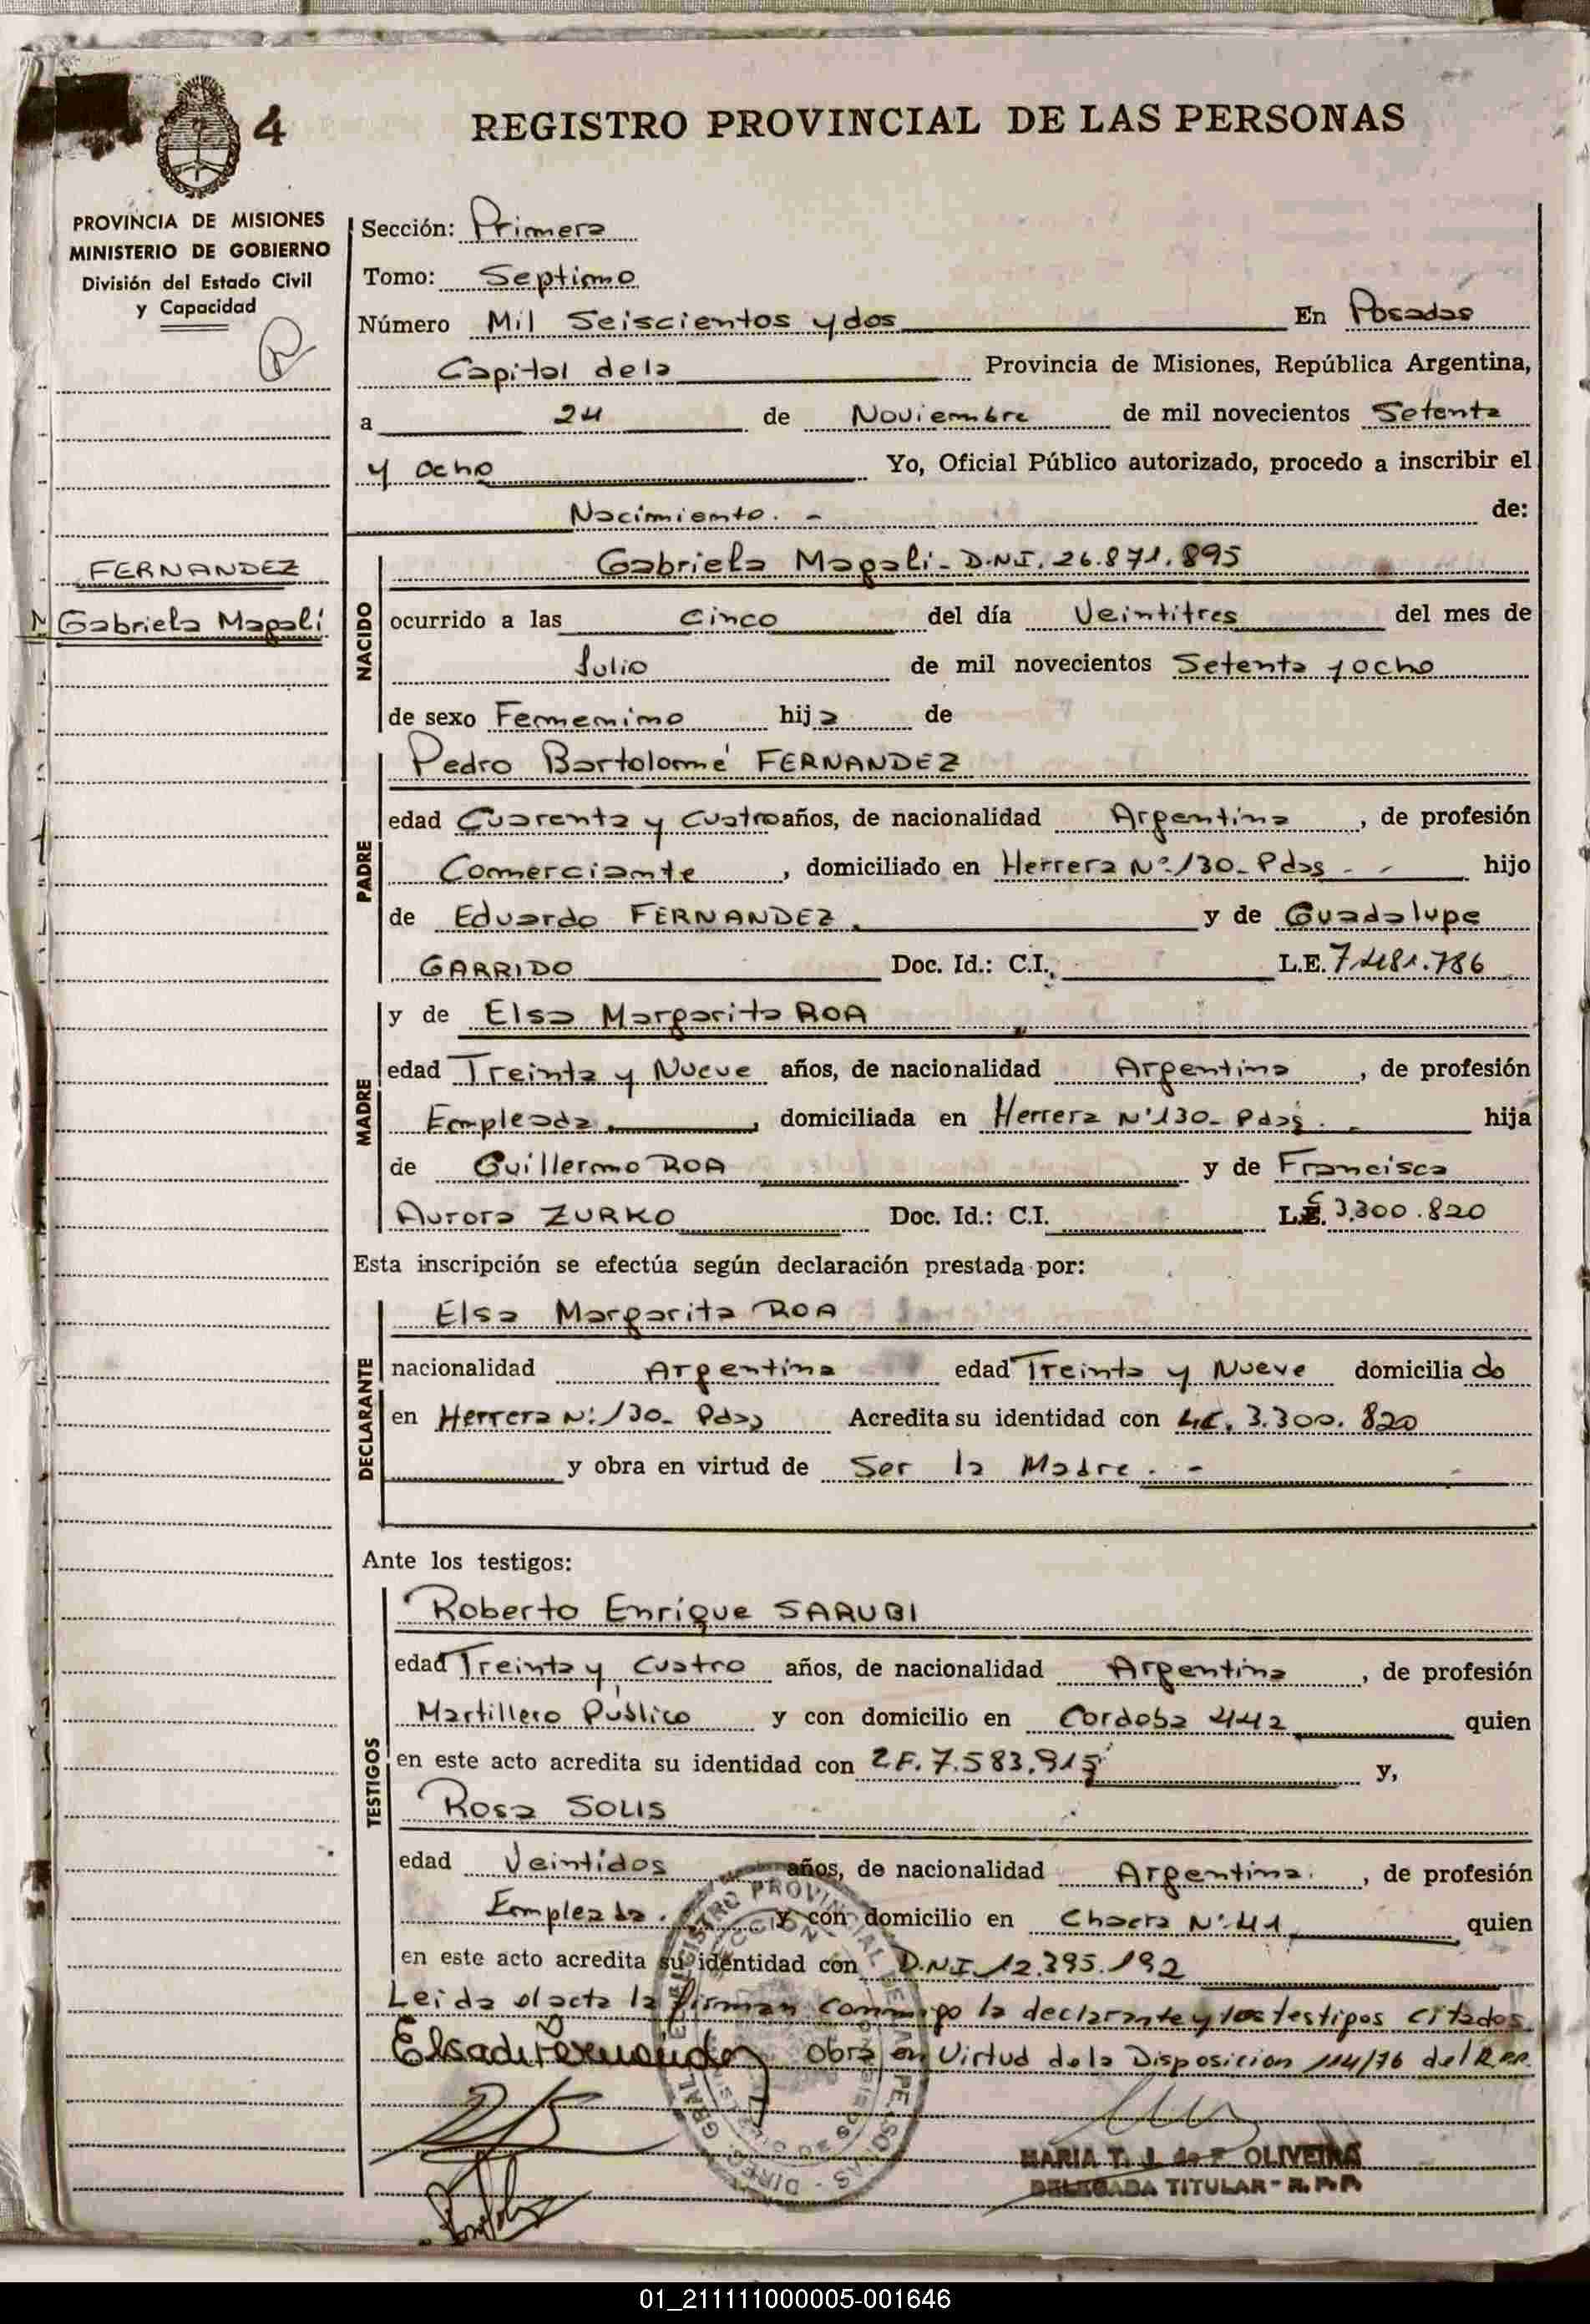 4
REGISTRO PROVINCIAL DE LAS PERSONAS
PROVINCIA DE MISIONES
MINISTERIO DE GOBIERNO
División del Estado Civil
y Capacidad
FERNANDEZ
Gabriela Magalí
Sección: Primera
Tomo: Septimo
Número Mil Seiscientos y dos En Posadas
Capital de la Provincia de Misiones, República Argentina,
a 24 de Noviembre de mil novecientos Setenta
y ocho Yo, Oficial Público autorizado, procedo a inscribir el
Nacimiento. - de:
NACIDO
Gabriela Magali - D.N.I. 26.871.895
ocurrido a las Cinco del día Veintitres del mes de
Julio de mil novecientos Setenta y ocho
de sexo Femenino hija de
PADRE
Pedro Bartolomé FERNANDEZ
edad Cuarenta y Cuatro años, de nacionalidad Argentina, de profesión
Comerciante, domiciliado en Herrera Nº 130 - Pdas - - hijo
de Eduardo FERNANDEZ. y de Guadalupe
GARRIDO Doc. Id.: C.I. L.E. 7.481.786
MADRE
y de Elsa Margarita ROA
edad Treinta y Nueve años, de nacionalidad Argentina, de profesión
Empleada, domiciliada en Herrera Nº 130 - Pdas. - hija
de Guillermo ROA y de Francisca
Aurora ZURKO Doc. Id.: C.I. L.C. 3.300.820
Esta inscripción se efectúa según declaración prestada por:
DECLARANTE
Elsa Margarita ROA
nacionalidad Argentina edad Treinta y Nueve domiciliado
en Herrera Nº 130 - Pdas Acredita su identidad con L.C. 3.300.820
y obra en virtud de Ser la Madre. -
Ante los testigos:
TESTIGOS
Roberto Enrique SARUBI
edad Treinta y Cuatro años, de nacionalidad Argentina, de profesión
Martillero Público y con domicilio en Cordoba 442 quien
en este acto acredita su identidad con L.E. 7.583.915 y,
Rosa SOLIS
edad Veintidos años, de nacionalidad Argentina, de profesión
Empleada. y con domicilio en Chacra Nº 41 quien
en este acto acredita su identidad con D.N.I. 12.395.192
Leida el acta la firman conmigo la declarante y los testigos citados
Elsa de Fernandez Obra en Virtud de la Disposicion 114/76 del R.P.P.
REGISTRO PROVINCIAL DE LAS PERSONAS - DIREC. GRAL.
MARIA T. J. de F. OLIVEIRA
DELEGADA TITULAR - R.P.P.
01_211111000005-001646